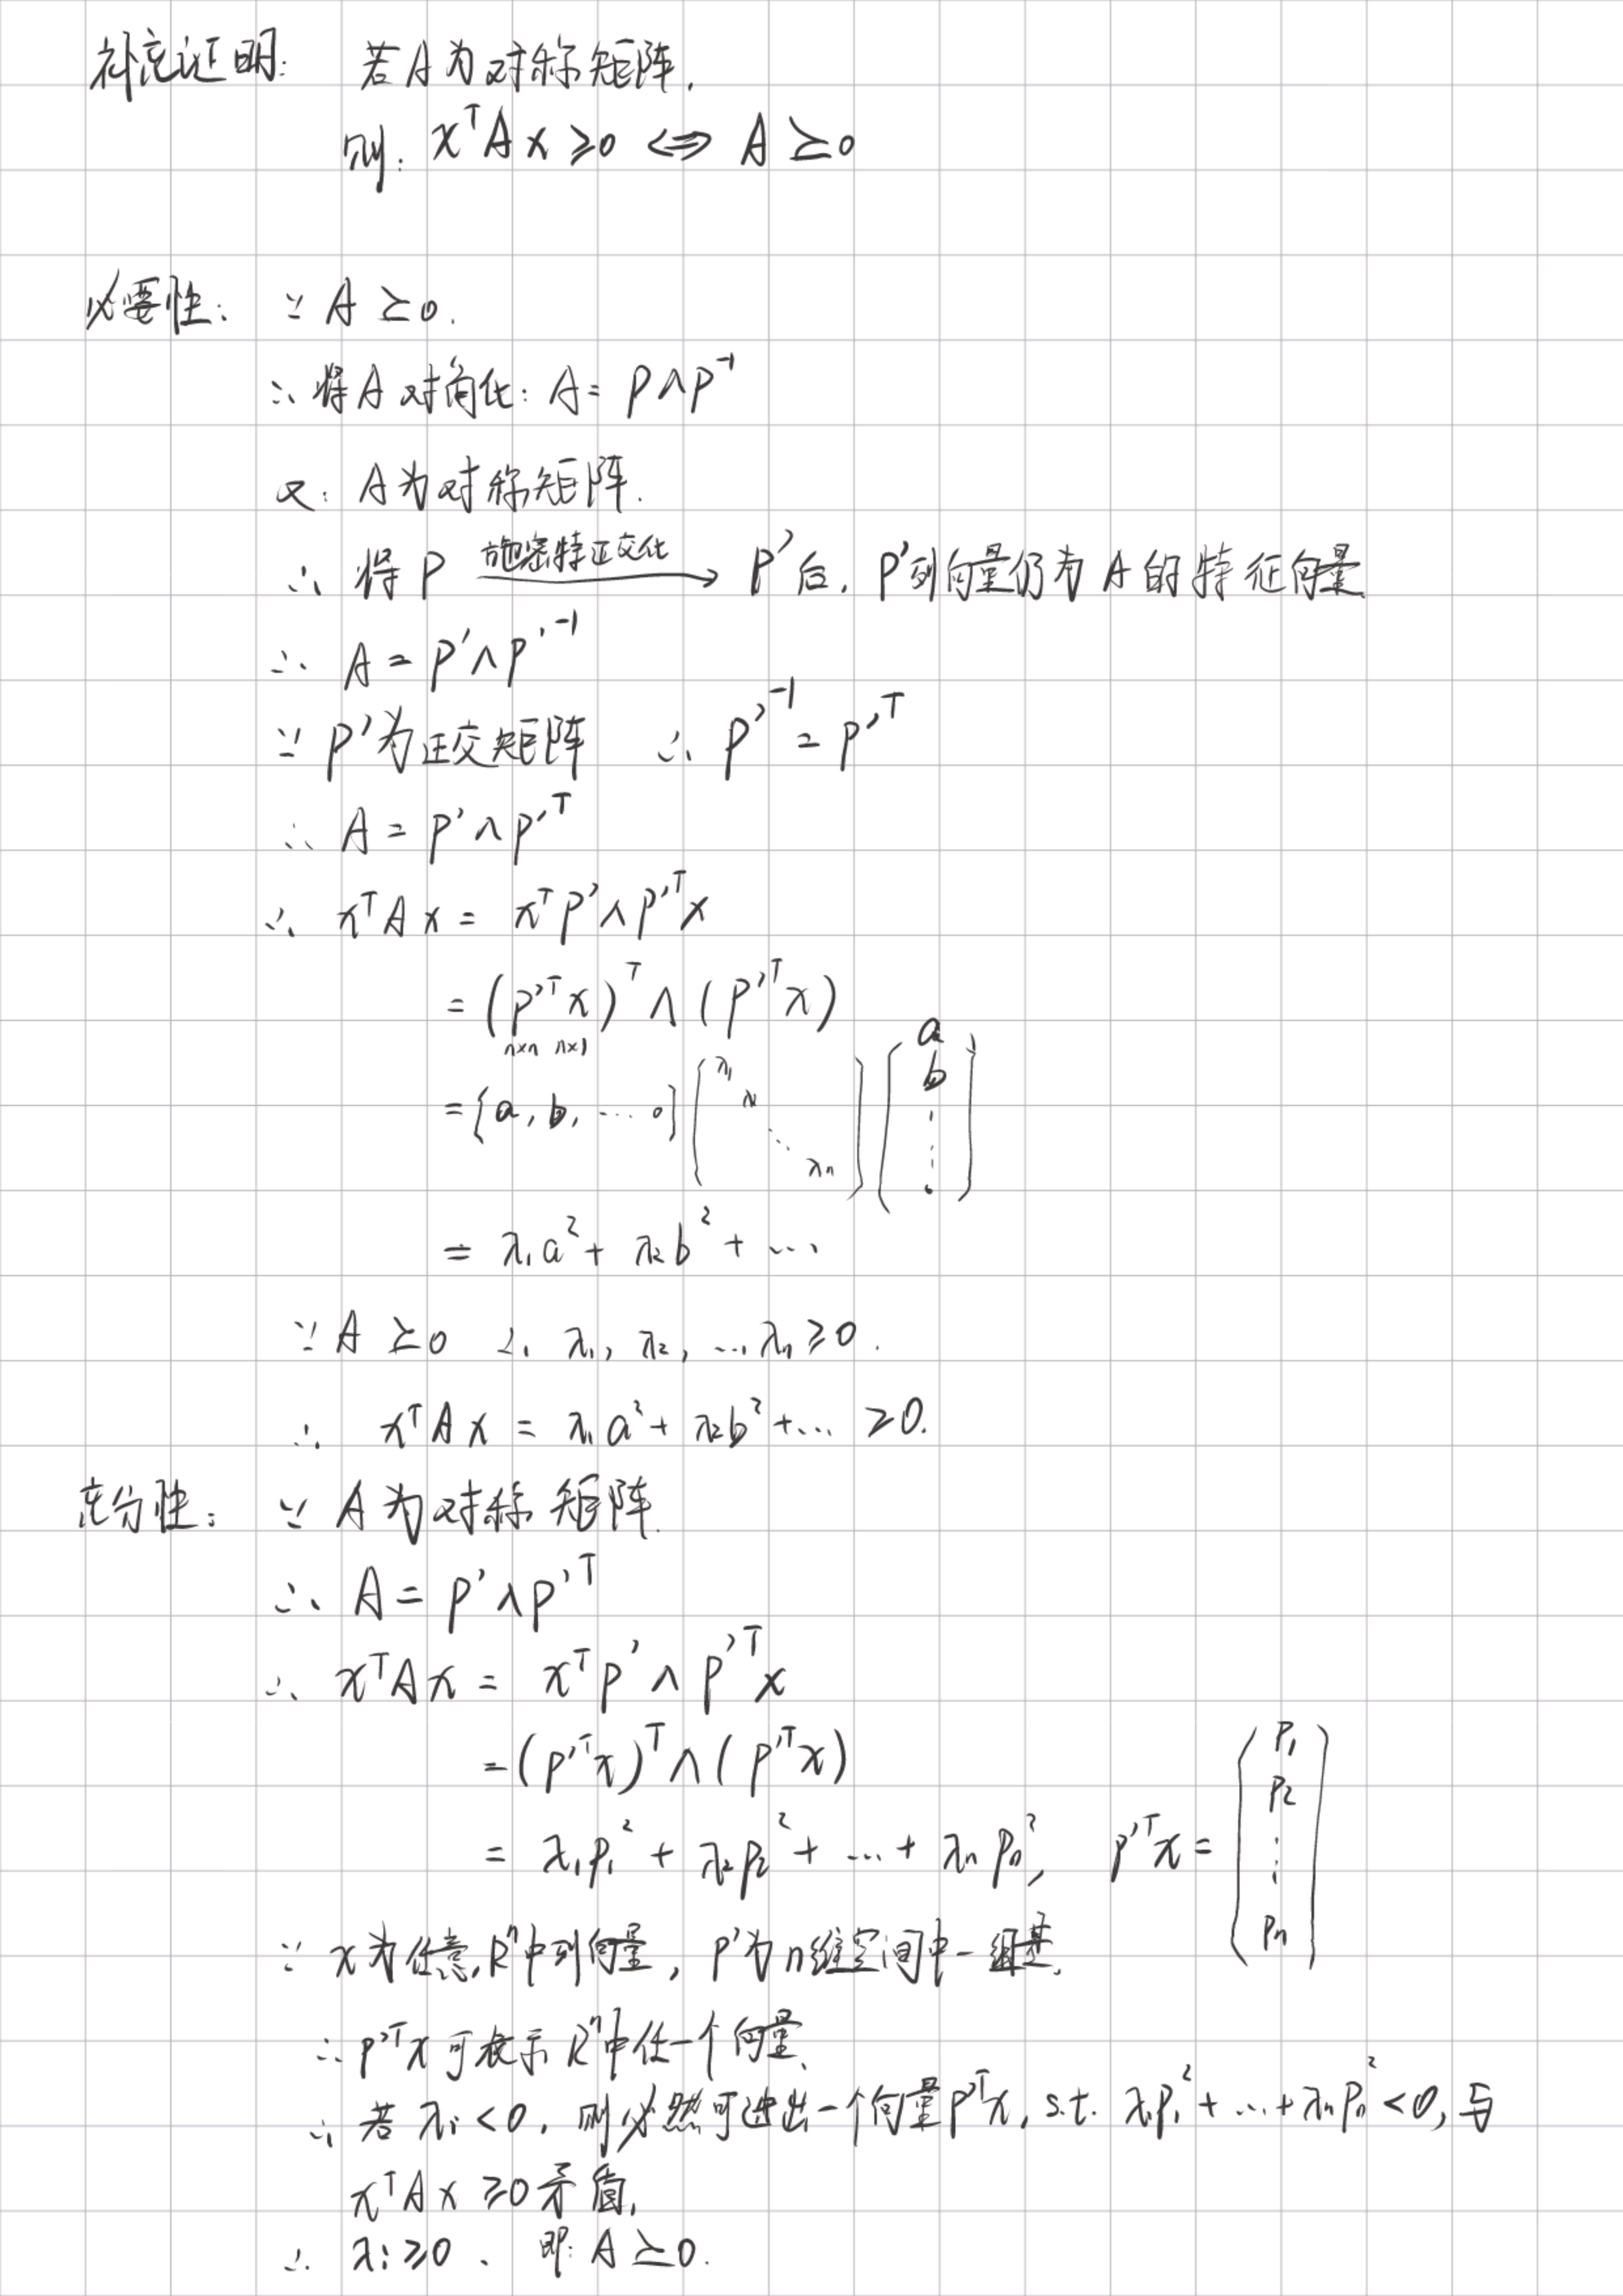 补充证明: 若A为对称矩阵.
则: xᵀAx ≥0 ⟺ A ⪰0
必要性: ∵ A ⪰0.
∴ 将A对角化: A= PΛP⁻¹
又: A为对称矩阵.
∴ 将P 施密特正交化→ P'后, P'列向量仍为A的特征向量
∴ A = P'ΛP'⁻¹
∵ P'为正交矩阵 ∴ P'⁻¹ = P'ᵀ
∴ A = P'ΛP'ᵀ
∴ xᵀAx = xᵀP'ΛP'ᵀx
= (P'ᵀx)ᵀ Λ (P'ᵀx)
n×n n×1
= [a, b, ...] [λ₁ λ₂ ⋱ λₙ] [a b ⋮]
= λ₁a² + λ₂b² + ...
∵ A ⪰0 ∴ λ₁, λ₂, ...λₙ ≥0.
∴ xᵀAx = λ₁a² + λ₂b² + ... ≥0.
充分性: ∵ A为对称矩阵.
∴ A = P'ΛP'ᵀ
∴ xᵀAx = xᵀP'ΛP'ᵀx
= (P'ᵀx)ᵀ Λ (P'ᵀx)
= λ₁p₁² + λ₂p₂² + ... + λₙpₙ², P'ᵀx = [p₁ p₂ ⋮ pₙ]
∵ x为任意Rⁿ中列向量, P'为n维空间中一组基.
∴ P'ᵀx可表示Rⁿ中任一个向量.
∴ 若λᵢ<0, 则必然可选出一个向量P'ᵀx, s.t. λ₁p₁² + ... + λₙpₙ² <0, 与
xᵀAx ≥0矛盾.
∴ λᵢ ≥0、即: A ⪰0.